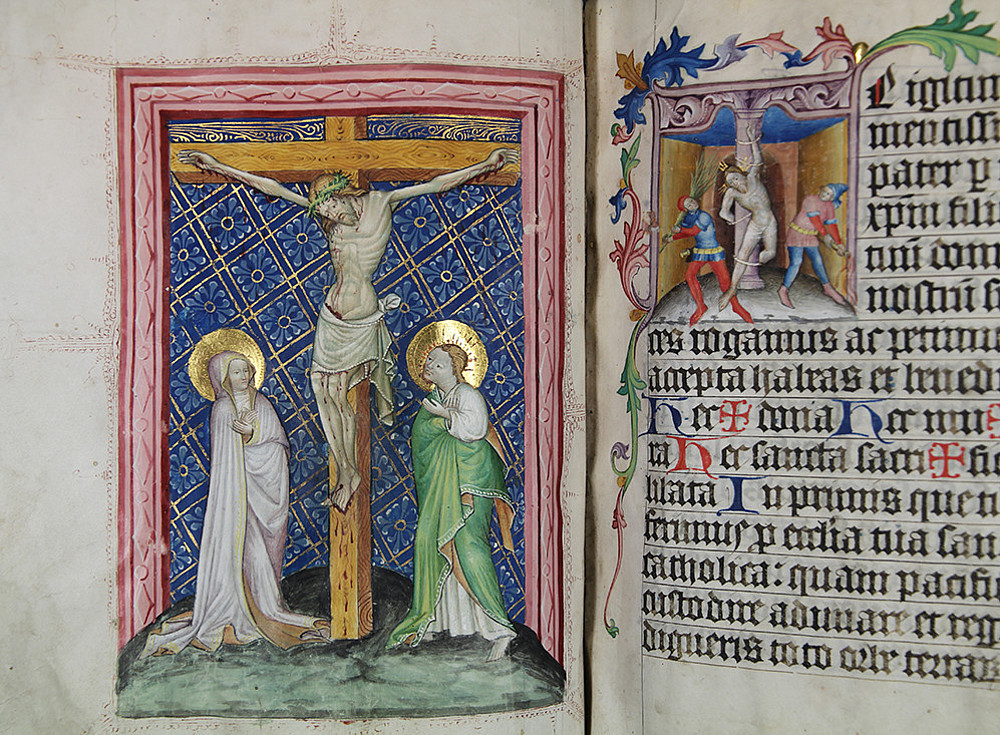 E igitur
mentissi
pater p
xpm fili
tuū dom
nostrū s
ces rogamus ac petimu
accepta habeas et bened
Hec ✠ dona Hec mu
ra Hec sancta sacri✠fic
libata In primis que ti
ferimus p ecclia tua san
catholica: quam pacifi
custodire adunare et reg
digneris toto orbe terrar